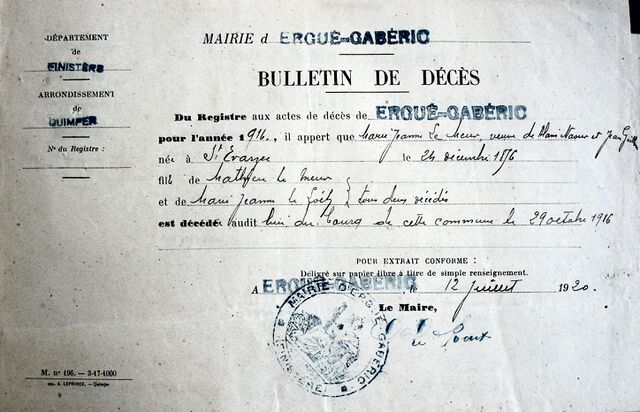 DÉPARTEMENT
de
FINISTÈRE
ARRONDISSEMENT
de
QUIMPER
N° du Registre :
MAIRIE d ERGUÉ-GABÉRIC
BULLETIN DE DÉCÈS
Du Registre aux actes de décès de ERGUÉ-GABÉRIC
pour l'année 1916, il appert que Marie Jeanne Le Meur, veuve de Alain Naour et Jean
né à St Evarzec le 24 décembre
fil de Mathieu Le Meur
et de Marie Jeanne Le Goël } tous deux décédés
est décédé audit lieu du bourg de cette commune le 29 octobre 1916
POUR EXTRAIT CONFORME :
Délivré sur papier libre à titre de simple renseignement.
A ERGUÉ-GABÉRIC, le 12 Juillet 1920.
Le Maire,
MAIRIE D'ERGUÉ-GABÉRIC
(FINISTÈRE)
M. n° 196. — 3-17-1000
Imp. A. LEPRINCE. — Quimper